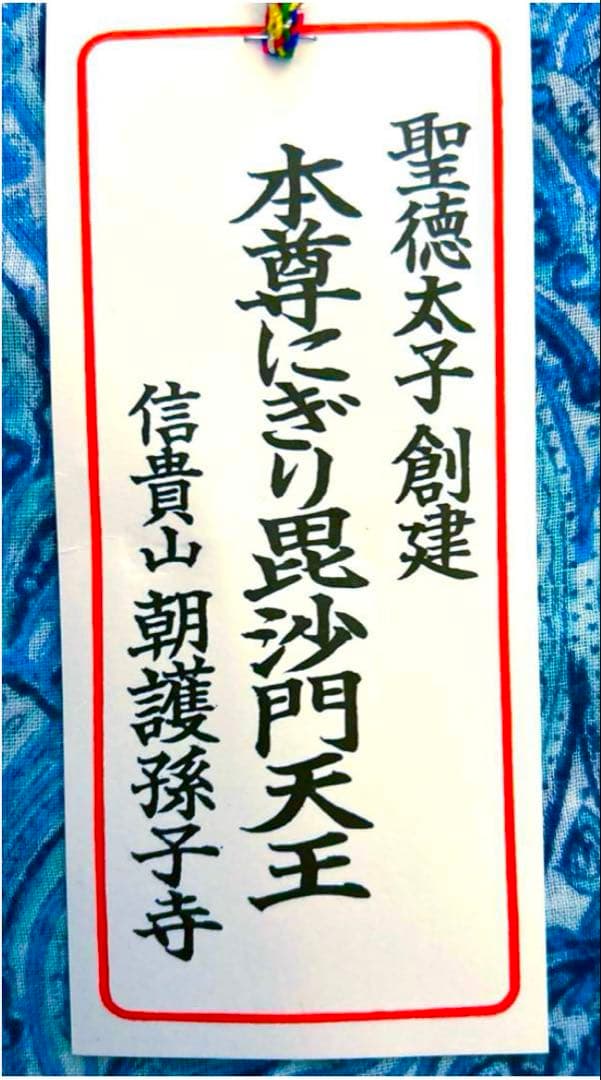 聖徳太子 創建
本尊にぎり毘沙門天王
信貴山 朝護孫子寺